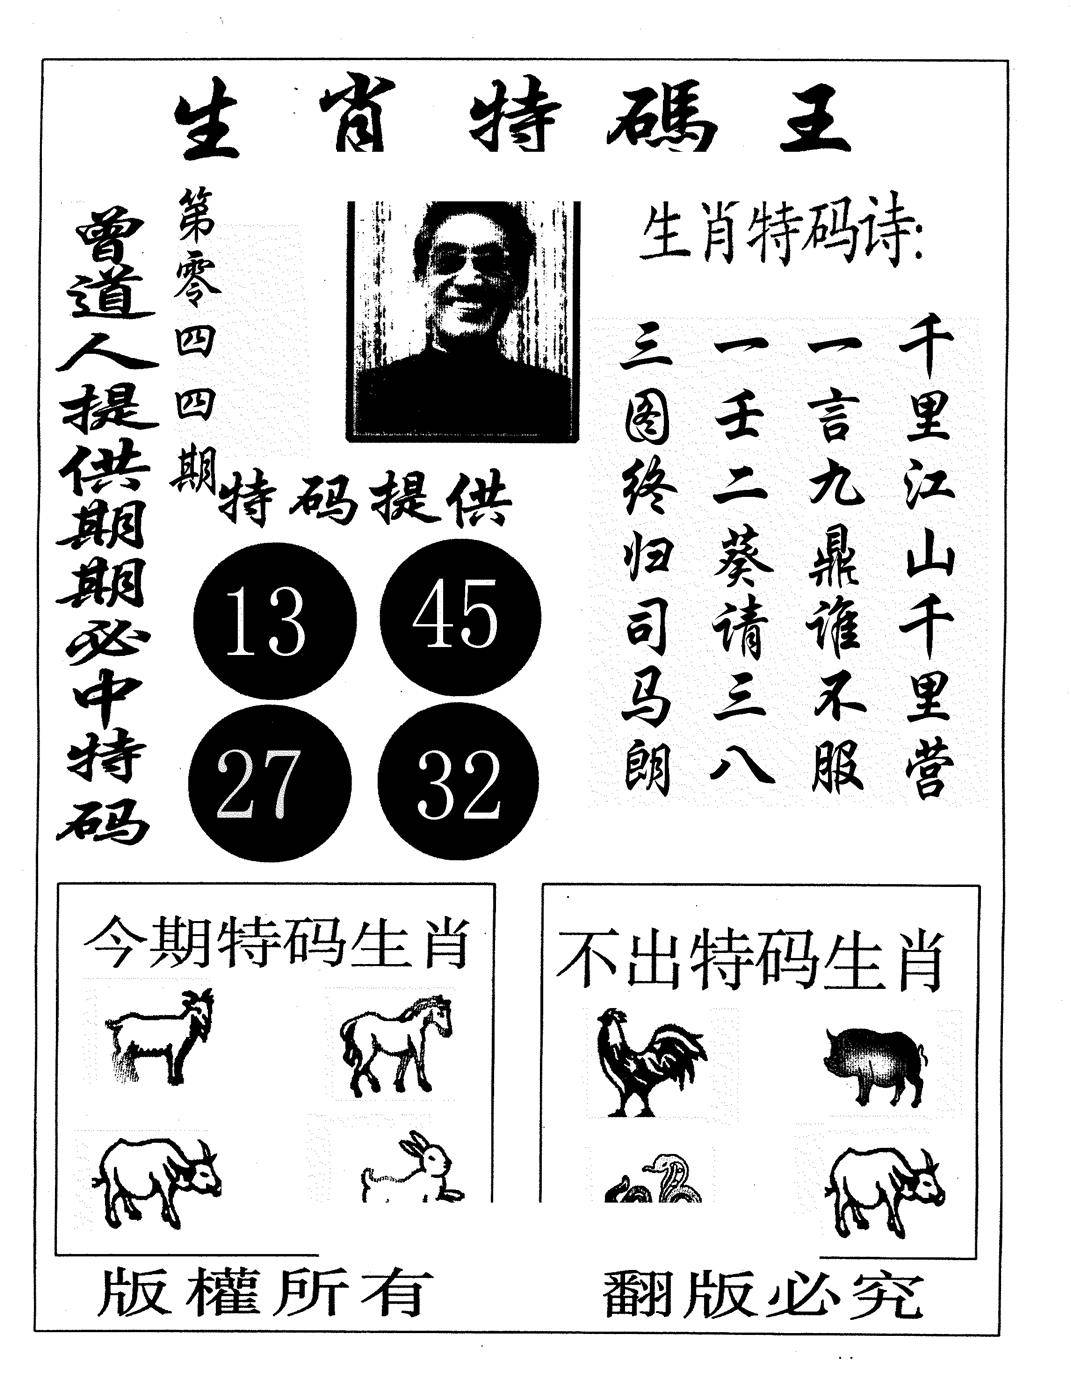 生肖特碼王
曾道人提供期期必中特码
第零四四期
特码提供
13 45
27 32
生肖特码诗:
千里江山千里营
一言九鼎谁不服
一壬二葵请三八
三图终归司马朗
今期特码生肖
不出特码生肖
版權所有
翻版必究